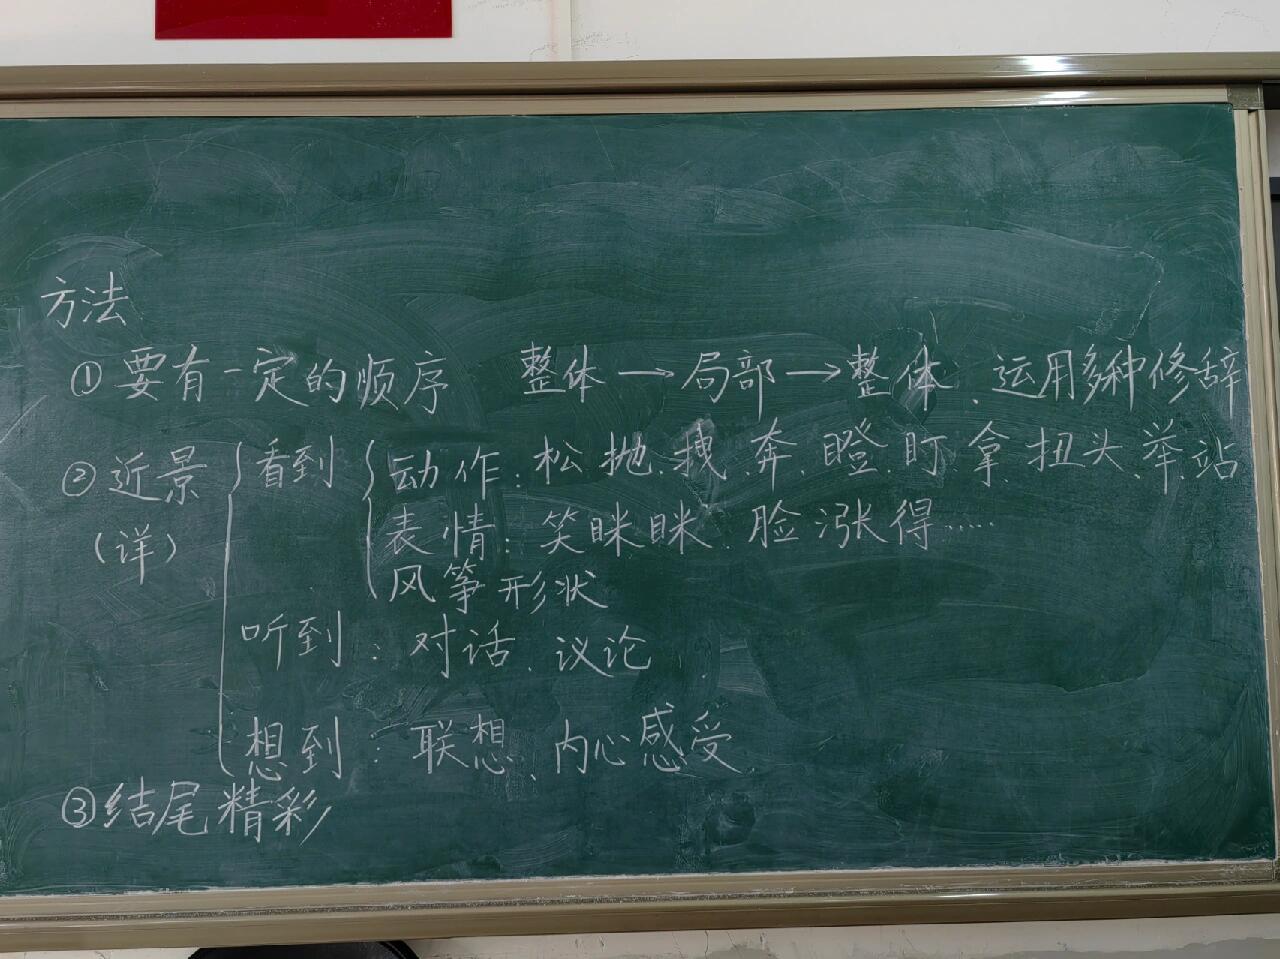 方法
①要有一定的顺序 整体→局部→整体、运用多种修辞
②近景 看到 动作:松、抛、拽、奔、瞪、盯、拿、扭头、举、站
(详) 表情:笑眯眯、脸涨得……
风筝形状
听到:对话、议论
想到:联想、内心感受
③结尾精彩